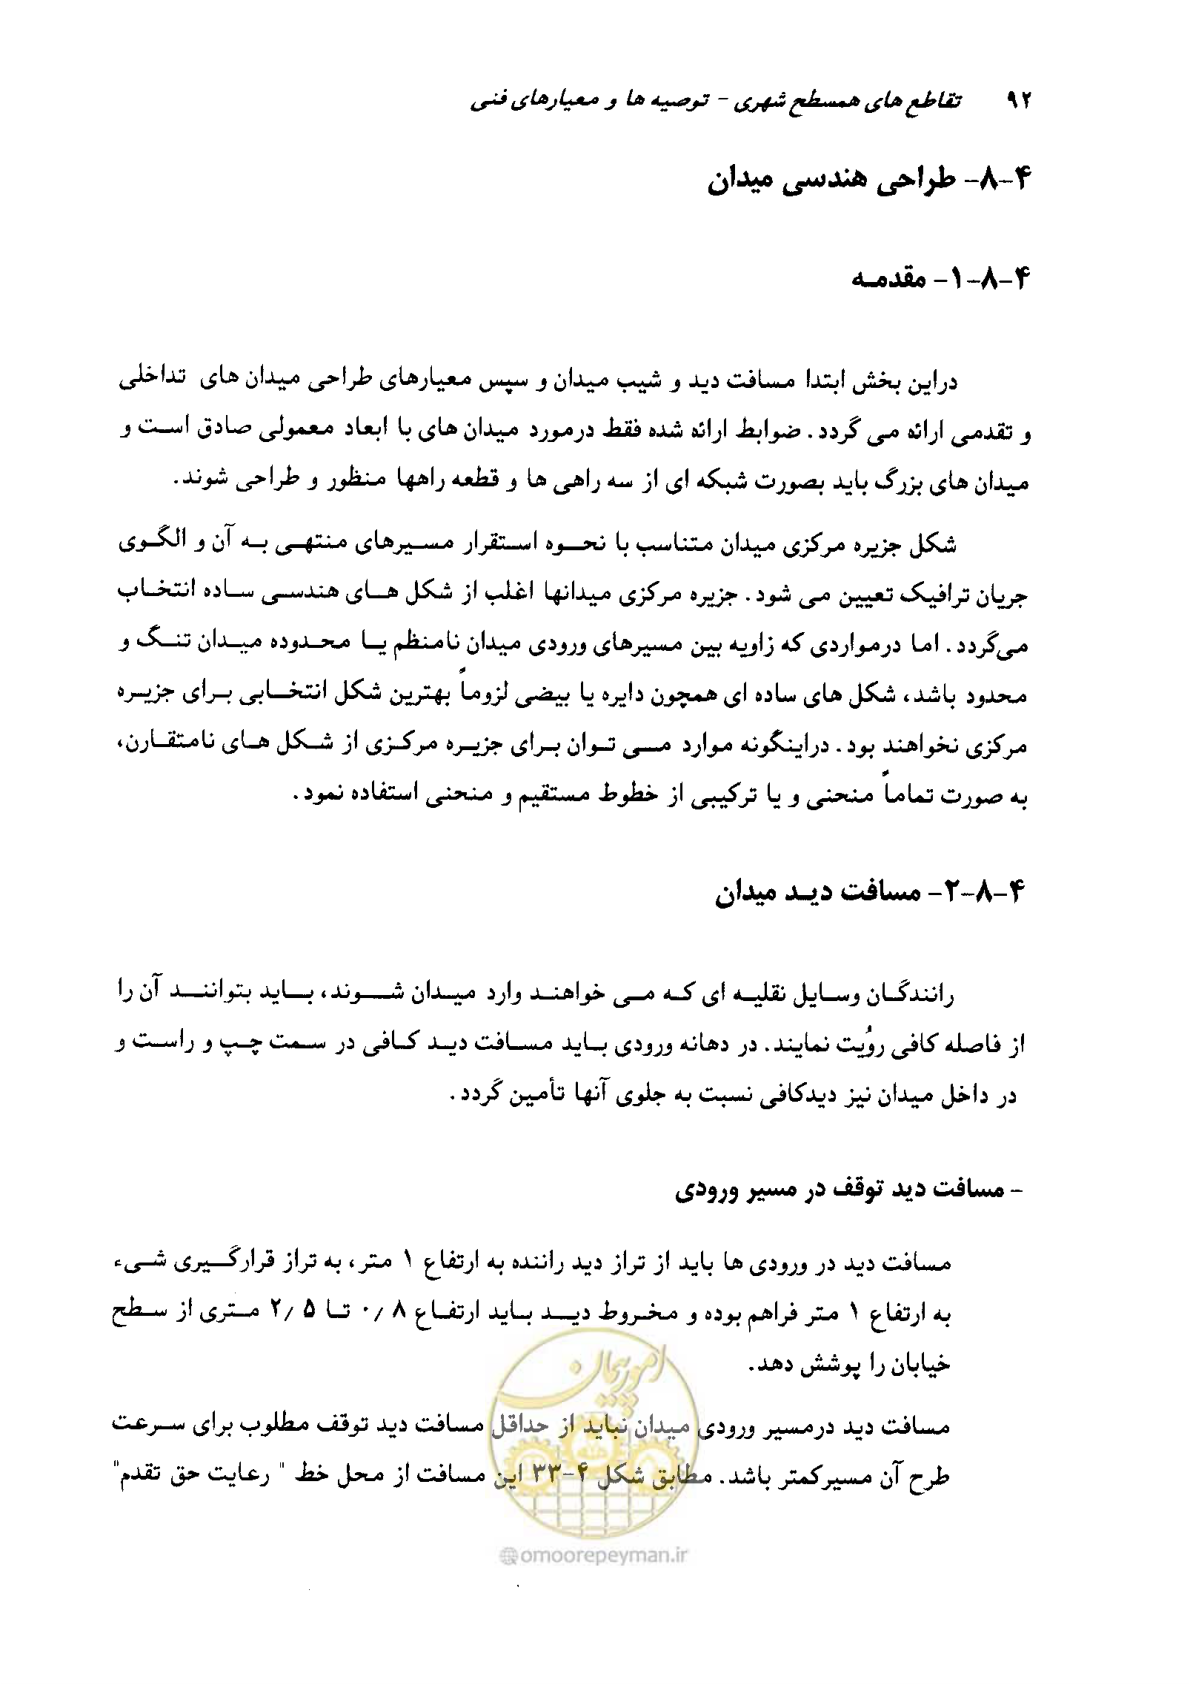 ۹۲ تقاطع های همسطح شهری - توصیه ها و معیارهای فنی
۴-۸- طراحی هندسی میدان
۴-۸-۱- مقدمه
دراین بخش ابتدا مسافت دید و شیب میدان و سپس معیارهای طراحی میدان های تداخلی
و تقدمی ارائه می گردد. ضوابط ارائه شده فقط درمورد میدان های با ابعاد معمولی صادق است و
میدان های بزرگ باید بصورت شبکه ای از سه راهی ها و قطعه راهها منظور و طراحی شوند.
شکل جزیره مرکزی میدان متناسب با نحوه استقرار مسیرهای منتهی به آن و الگوی
جریان ترافیک تعیین می شود. جزیره مرکزی میدانها اغلب از شکل های هندسی ساده انتخاب
می‌گردد. اما درمواردی که زاویه بین مسیرهای ورودی میدان نامنظم یا محدوده میدان تنگ و
محدود باشد، شکل های ساده ای همچون دایره یا بیضی لزوماً بهترین شکل انتخابی برای جزیره
مرکزی نخواهند بود. دراینگونه موارد می توان برای جزیره مرکزی از شکل های نامتقارن،
به صورت تماماً منحنی و یا ترکیبی از خطوط مستقیم و منحنی استفاده نمود.
۴-۸-۲- مسافت دید میدان
رانندگان وسایل نقلیه ای که می خواهند وارد میدان شوند، باید بتوانند آن را
از فاصله کافی رؤیت نمایند. در دهانه ورودی باید مسافت دید کافی در سمت چپ و راست و
در داخل میدان نیز دیدکافی نسبت به جلوی آنها تأمین گردد.
- مسافت دید توقف در مسیر ورودی
مسافت دید در ورودی ها باید از تراز دید راننده به ارتفاع ۱ متر، به تراز قرارگیری شیء
به ارتفاع ۱ متر فراهم بوده و مخروط دید باید ارتفاع ۰/۸ تا ۲/۵ متری از سطح
خیابان را پوشش دهد.
مسافت دید درمسیر ورودی میدان نباید از حداقل مسافت دید توقف مطلوب برای سرعت
طرح آن مسیرکمتر باشد. مطابق شکل ۴-۳۳ این مسافت از محل خط " رعایت حق تقدم"
امور پیمان
@omoorepeyman.ir